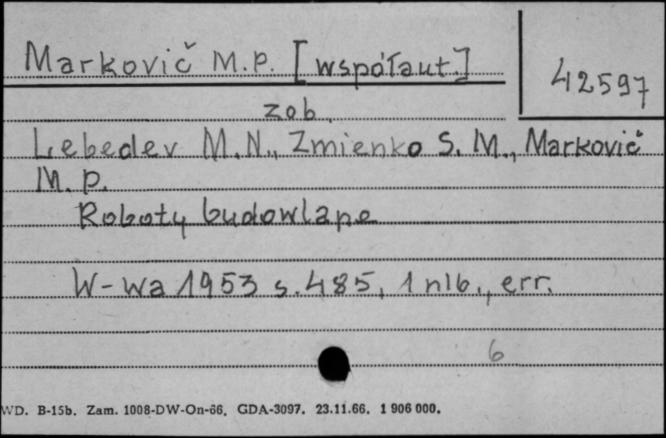 Markovič M.P. [współaut.]
42597
zob.
Lebedev M.N., Zmienko S.M., Markovič
M.P.
Roboty budowlane
W-wa 1953 s.485, 1 nlb., err.
6
WD. B-15b. Zam. 1008-DW-On-66. GDA-3097. 23.11.66. 1 906 000.